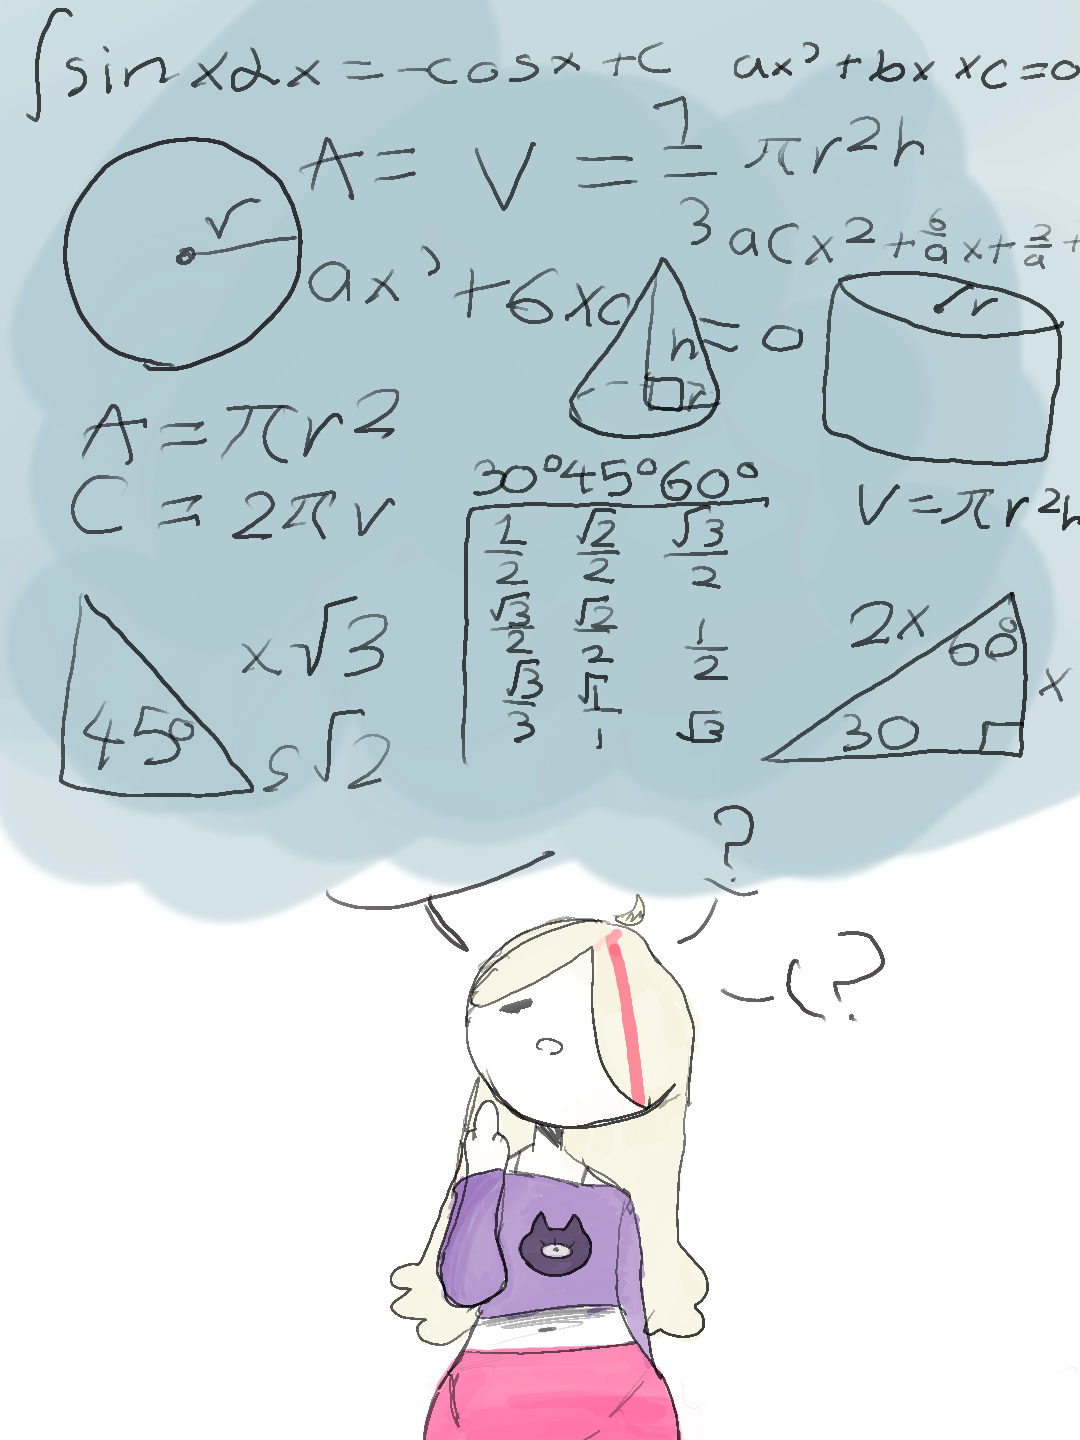 ∫sinxdx = -cosx +C ax² + bx xc = 0
A = V = 1/3 πr2h
r
acx2 + 6/a x + 2/a +
ax² + 6xc = 0
h
r
r
A = πr2
C = 2πr
30° 45° 60°
V = πr2h
1/2 √2/2 √3/2
√3/2 √2/2 1/2
√3/3 √1/1 √3
x√3
s√2
45°
2x
60°
x
30
?
?